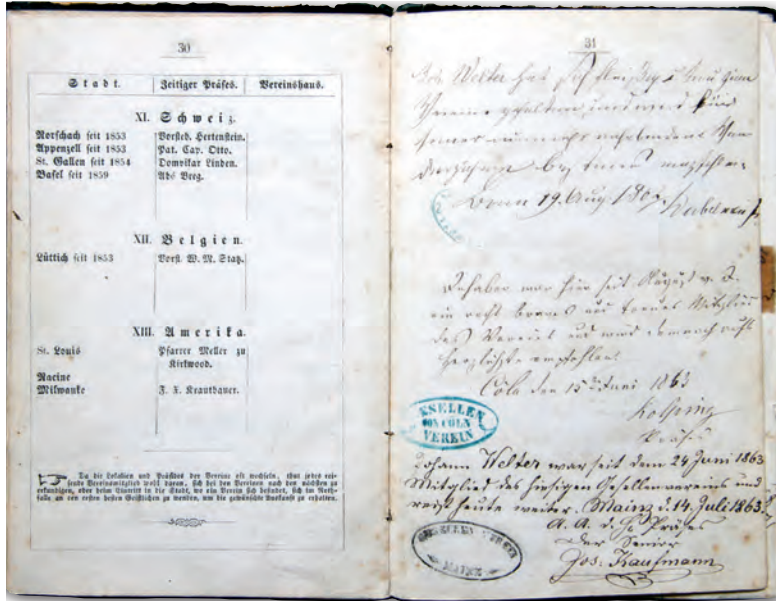 30
Stadt. Zeitiger Präses. Vereinshaus.
XI. Schweiz.
Rorschach seit 1853 Vorsteh. Hertenstein.
Appenzell seit 1853 Pat. Cap. Otto.
St. Gallen seit 1854 Domvikar Linden.
Basel seit 1859 Abb
XII. Belgien.
Lüttich seit 1853 Vorst. W. M. Statz.
XIII. Amerika.
St. Louis Pfarrer Meller zu
Kirkwood.
Racine
Milwauke F. X. Krautbauer.
Da die Lokalien und Präsides der Vereine oft wechseln, thut jedes rei-
sende Vereinsmitglied wohl daran, sich bei den Vereinen nach den nächsten zu
erkundigen, oder beim Eintritt in die Stadt, wo ein Verein sich befindet, sich im Noth-
falle an den ersten besten Geistlichen zu wenden, um die gewünschte Auskunft zu erhalten.
31
Joh. Welter hat sich fleißig zum
Vereine gehalten und wird für
seine nunmehr
Bonn 19. Aug. 186
Inhaber war hier seit August v. J.
ein recht braves und treues Mitglied
des Vereins und wird demnach aufs
herzlichste empfohlen.
Cöln den 15 Juni 1863
Kolping
Präses
GESELLEN
VON CÖLN
VEREIN
Johann Welter war seit dem 24 Juni 1863
Mitglied des hiesigen Gesellenvereins und
reist heute weiter. Mainz d. 14. Juli 1863.
A. A. d. H. Präses
Der Senior
Jos. Kaufmann
GESELLEN VEREIN
MAINZ